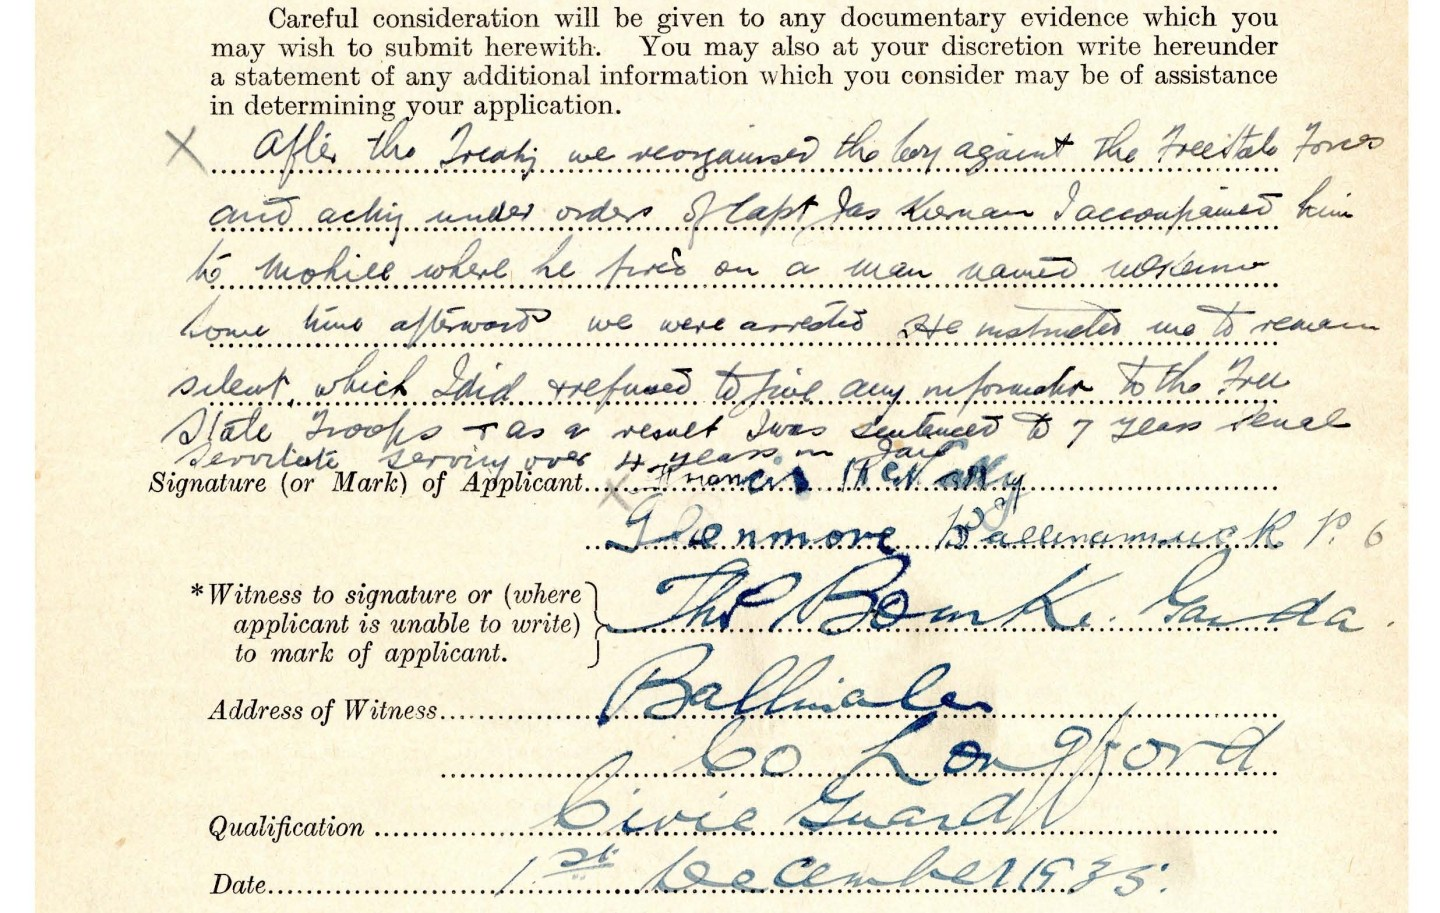 Careful consideration will be given to any documentary evidence which you
may wish to submit herewith. You may also at your discretion write hereunder
a statement of any additional information which you consider may be of assistance
in determining your application.
X After the Treaty we reorganised the coy against the Freestate Forces
and acting under orders of Capt Jas Kiernan I accompanied him
to Mohill where he fired on a man named McKenna
some time afterwards we were arrested He instructed me to remain
silent, which I did & refused to give any information to the Free
State Troops & as a result I was sentenced to 7 years Penal
Servitude serving over 4 years in Jail
Signature (or Mark) of Applicant X Francis McNally
Glenmore Ballinamuck P. O
*Witness to signature or (where
applicant is unable to write)
to mark of applicant.
Thos Bourke. Garda.
Address of Witness Ballinalee
Co Longford
Qualification Civic Guard
Date 1st December 1935.